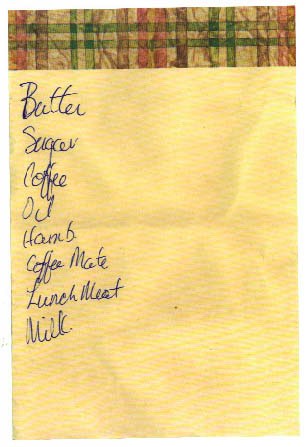 Butter
Sugar
Coffee
Oil
Hamb.
Coffee Mate
Lunch Meat
Milk